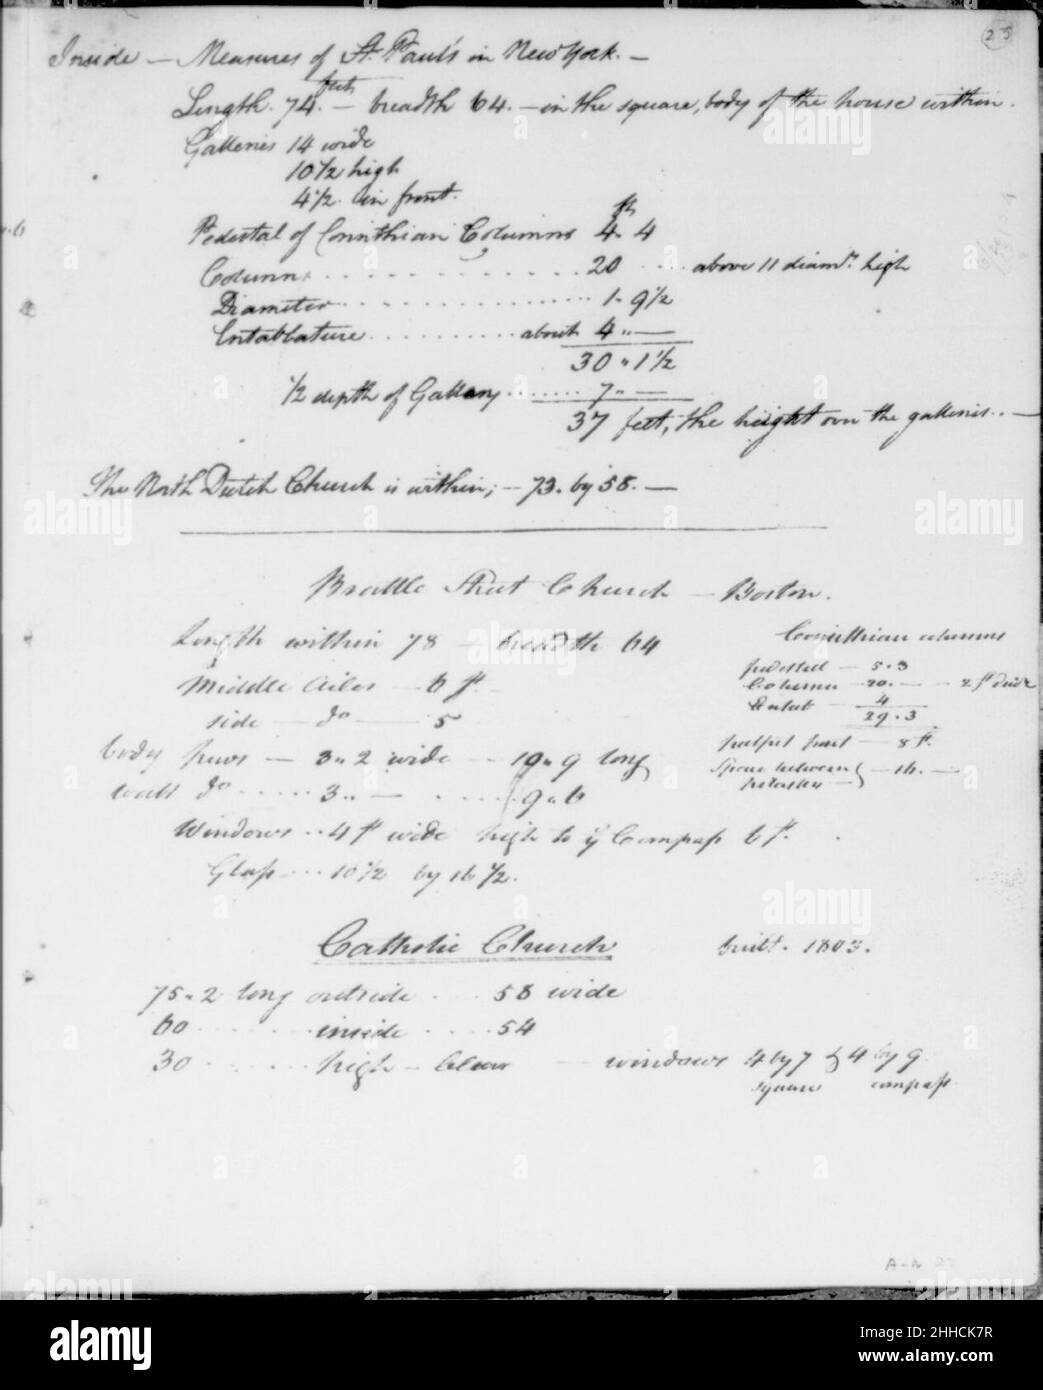 25
Inside — Measures of St. Paul's in New York. —
feet
Length. 74. — breadth 64. — in the square, body of the house within.
Galleries 14 wide
10 1/2 high
4 1/2. in front.
ft
Pedestal of Corinthian Columns 4. 4
Columns . . . . . . . . . . . 20 . . . . above 11 diamrs. high
Diameter . . . . . . . . . . . 1. 9 1/2
Entablature . . . . . . . . . about 4 „ —
30 „ 1 1/2
1/2 depth of Gallery . . . . . . . 7 „ —
37 feet, the height over the galleries. . —
The North Dutch Church is within; — 73. by 58. —
Brattle Street Church — Boston.
Length within 78 — breadth 64
Middle Ailes — 6 ft.
side — do — 5
body pews — 3 „ 2 wide — 10 „ 9 long
wall do . . . . . 3 „ — . . . . . 9 „ 6
Windows . . 4 ft wide high to ye Compass 6 ft.
Glass . . . 10 1/2 by 16 1/2.
Corinthian columns
pedestal — 5 . 3
Column — 20. — — 2 ft
4
29 . 3
pulpit — 8 ft.
Space between — 16. —
Catholic Church built. 1803.
75 „ 2 long outside . . . 58 wide
60 . . . . . . . inside . . . . . 54
30 . . . . . . high — Clear — windows 4 by 7 & 4 by 9
square compass.
alamy
Image ID: 2HHCK7R
www.alamy.com